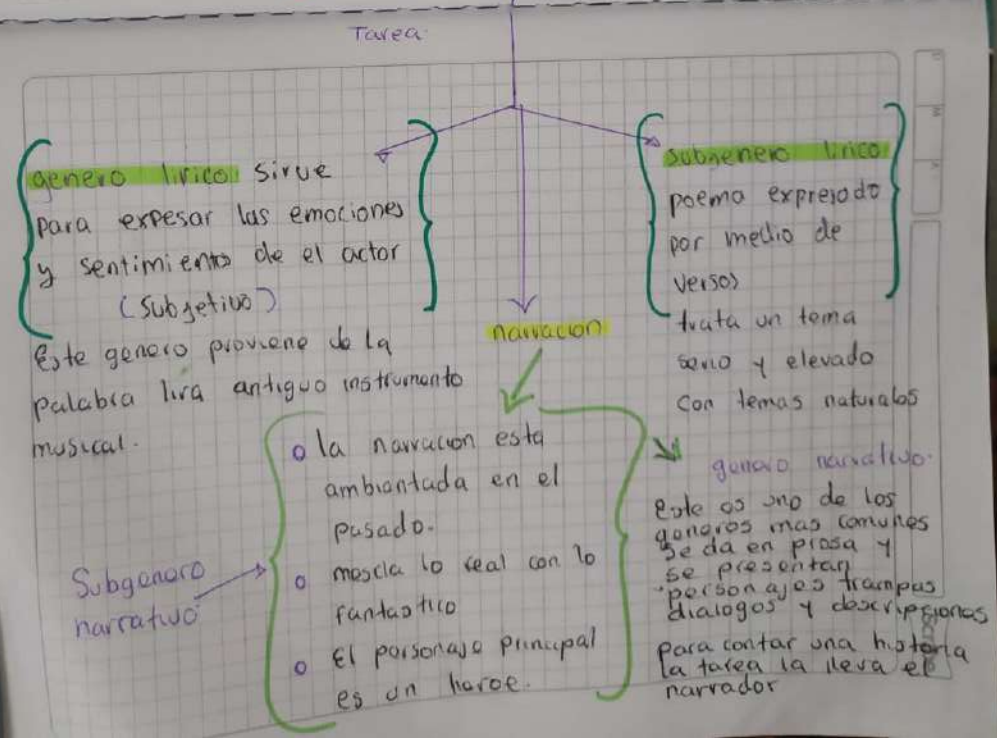 Tarea
genero lirico: sirve
para expesar las emociones
y sentimiento de el actor
(subjetivo)
Este genero proviene de la
palabra lira antiguo instrumento
musical.
subgenero lirico
poema expresado
por medio de
versos
trata un tema
serio y elevado
con temas naturales
narracion
Subgenero
narrativo
la narracion esta
ambientada en el
pasado.
mescla lo real con lo
fantastico
El personaje principal
es un heroe.
genero narrativo.
Este es uno de los
generos mas comunes
se da en prosa y
se presentan
personajes trampas
dialogos y descripsiones
para contar una historia
la tarea la lleva el
narrador